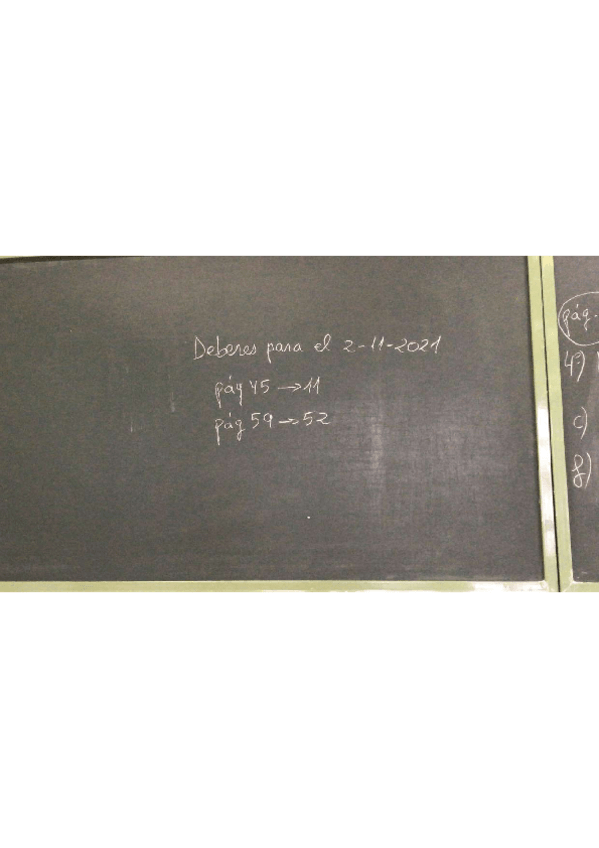 Deberes para el 2-11-2021
pág 45 → 11
pág 59 → 52
pág.
4º)
c)